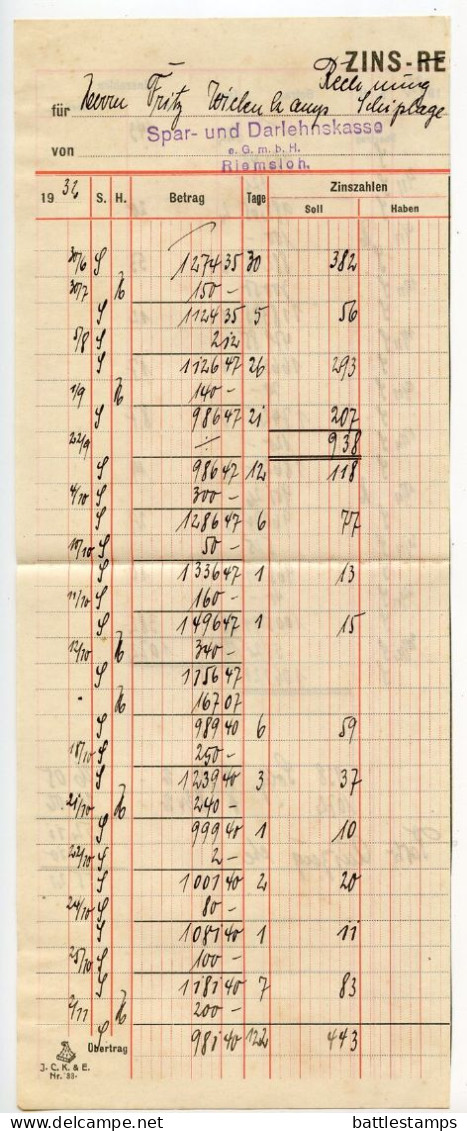 ZINS-RE
Rechnung
für Herrn Fritz Wickenkamp Schiplage
Spar- und Darlehnskasse
von e. G. m. b. H.
Riemsloh.
1932 S. H. Betrag Tage Zinszahlen
Soll Haben
30/6 S 1274 35 30 382
30/7 H 150 –
S 1124 35 5 56
5/8 S 2 12
S 1126 47 26 293
1/9 H 140 –
S 986 47 21 207
22/9 ÷ 938
S 986 47 12 118
4/10 S 300 –
S 1286 47 6 77
10/10 S 50 –
S 1336 47 1 13
11/10 S 160 –
S 1496 47 1 15
12/10 H 340 –
S 1156 47
H 167 07
S 989 40 6 59
18/10 S 250 –
S 1239 40 3 37
21/10 H 240 –
S 999 40 1 10
22/10 S 2 –
S 1001 40 2 20
24/10 S 80 –
S 1081 40 1 11
25/10 S 100 –
S 1181 40 7 83
2/11 H 200 –
S 981 40 122 443
Übertrag
J. C. K. & E.
Nr. 33
delcampe.net
battlestamps